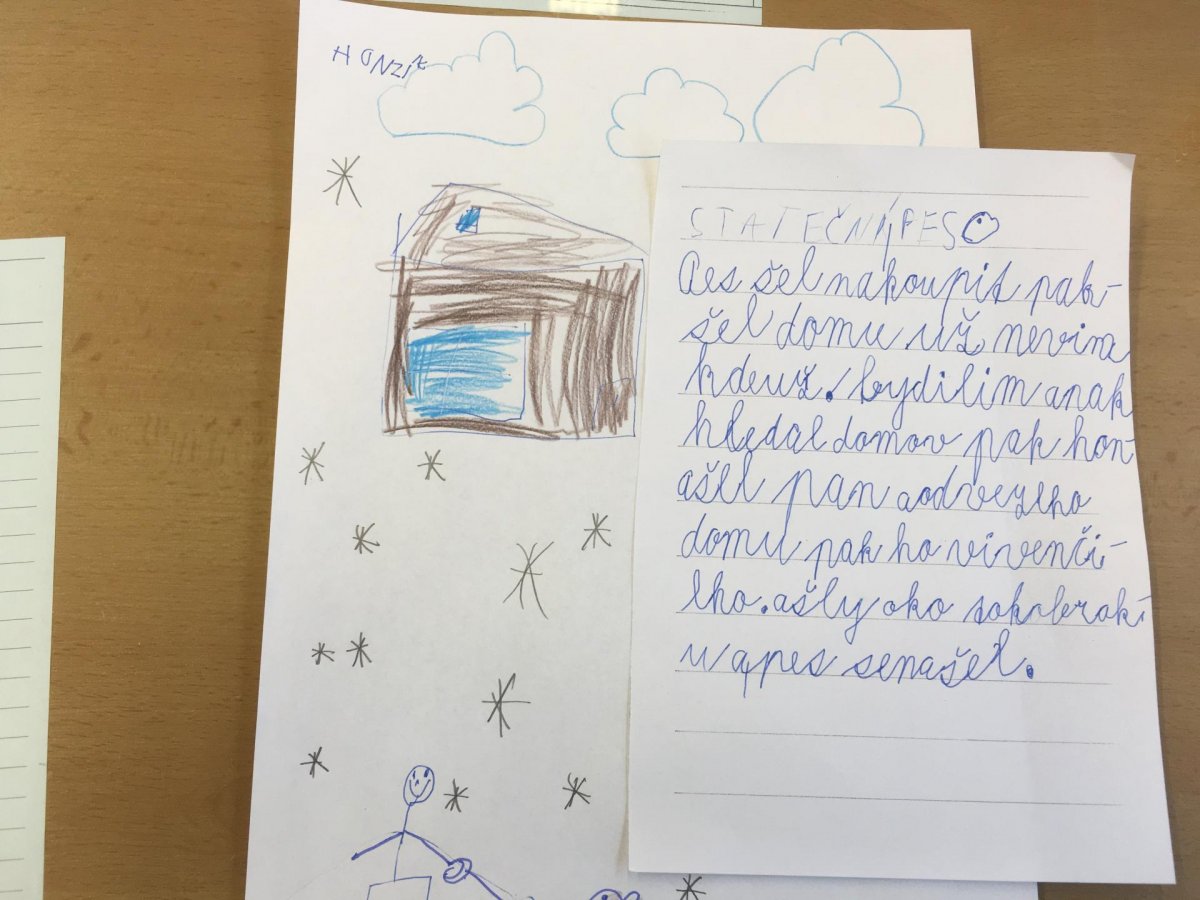 HONZÍK
STATEČNÍ PES
Pes šel nakoupit pak
šel domu už nevim
kdeuž. bydilim anak
hledal domov pak hon
ašel pan aodvezeho
domu pak ho vivenči-
lho. ašly oko
u apes senašel.